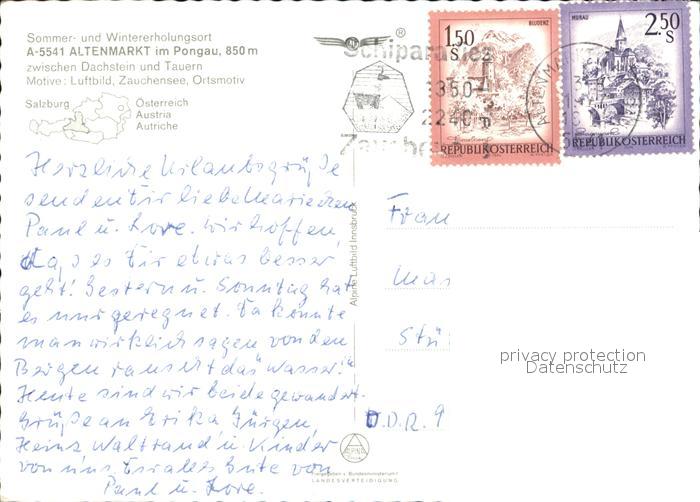 Sommer- und Wintererholungsort
A-5541 ALTENMARKT im Pongau, 850 m
zwischen Dachstein und Tauern
Motive: Luftbild, Zauchensee, Ortsmotiv
Salzburg
Österreich
Austria
Autriche
Herzliche Urlaubsgrüße
senden Dir liebe Mariechen
Paul u. Lore. Wir hoffen,
daß es Dir etwas besser
geht! Gestern u. Sonntag hat
es nur geregnet. Da könnte
man wirklich sagen von den
Bergen rauscht das Wasser!"
Heute sind wir beide gewandert.
Grüße an Erika Jürgen,
Heinz Waltraud u. Kinder
von uns. Dir alles Gute von
Paul u. Lore.
Alpine Luftbild Innsbruck
ALPINE
LANDESVERTEIDIGUNG
®
Schiparadies
1350
2240 m
Zauchensee
1.50 S
BLUDENZ
REPUBLIK ÖSTERREICH
MURAU
2.50 S
REPUBLIK ÖSTERREICH
ALTENMARKT
Frau
Mas
Stü
D.D.R. 9
privacy protection
Datenschutz